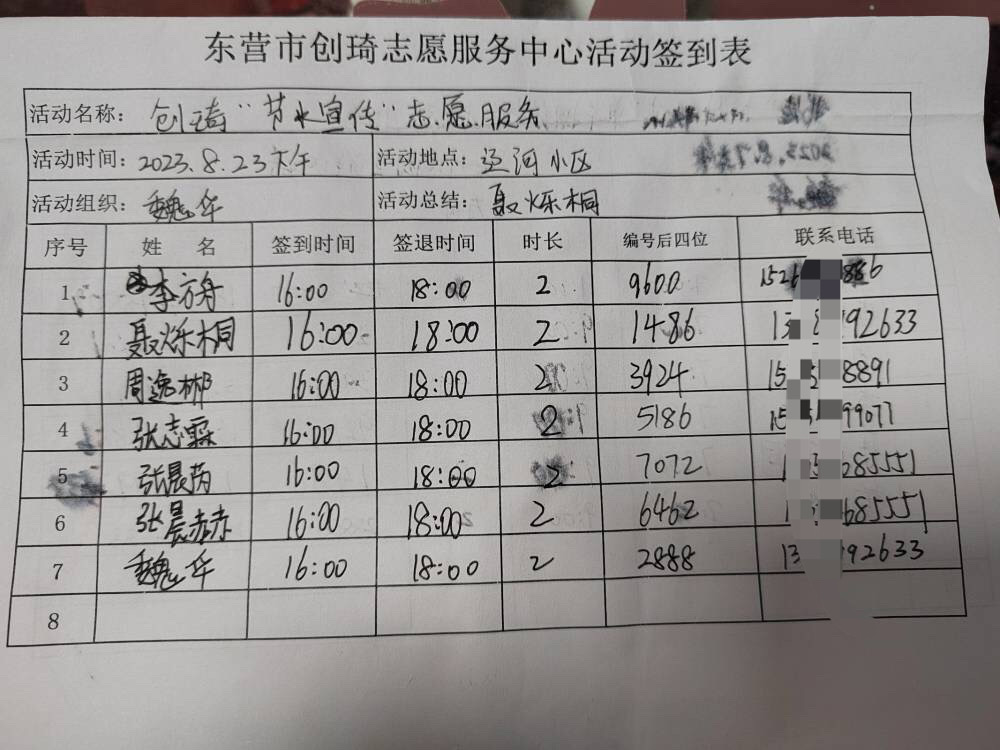 东营市创琦志愿服务中心活动签到表
活动名称： 创琦“节水宣传”志愿服务
活动时间：2023.8.23下午 活动地点：运河小区
活动组织：魏华 活动总结：聂烁桐
序号 姓 名 签到时间 签退时间 时长 编号后四位 联系电话
1 李方舟 16:00 18:00 2 9600 152 886
2 聂烁桐 16:00 18:00 2 1486 13 92633
3 周逸彬 16:00 18:00 2 3924 15 8891
4 张志霖 16:00 18:00 2 5186 15 99077
5 张晨芮 16:00 18:00 2 7072 1 685551
6 张晨赫 16:00 18:00 2 6462 1 685551
7 魏华 16:00 18:00 2 2888 13 92633
8